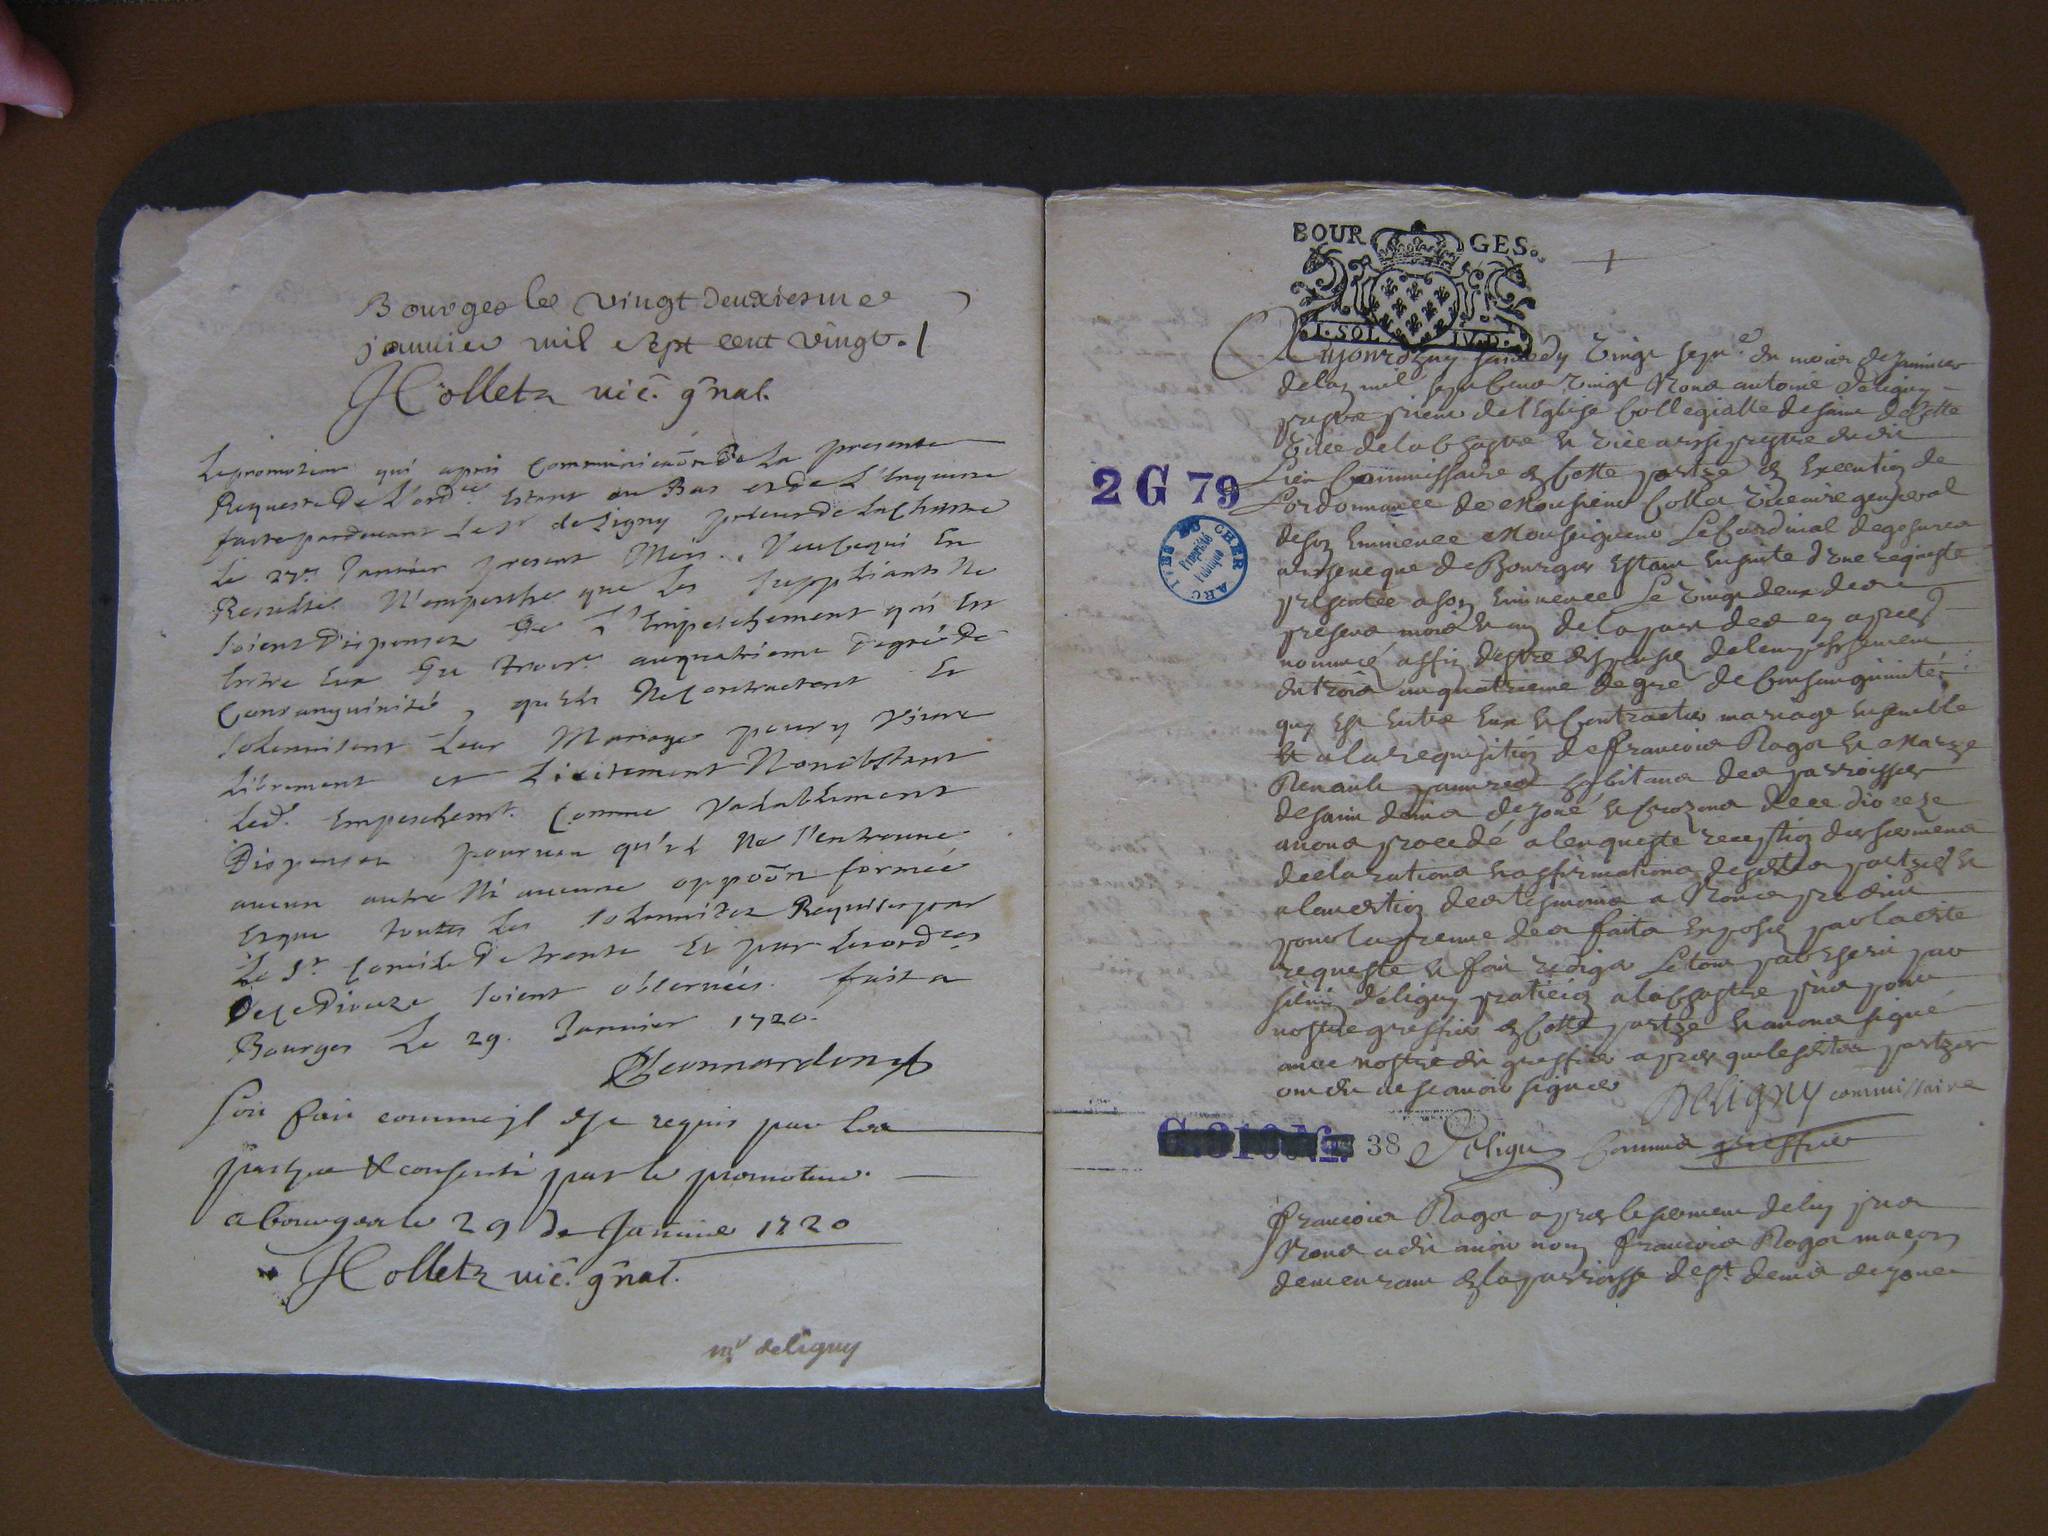 Bourges le vingt deuxiesme
janvier mil sept cent vingt.
Holletz vic. g̃nal.
Le promoteur qui apris Communica͠on De La presente
Requeste De L'ord^ce Estant au Bas et de L'Enqueste
faite pardevant Le S^r deLigny prieur de La Chastre
Le 27^e Janvier present Mois. Veu ce qui En
Resulte N'empesche que Les Suppliants Ne
soient Dispensez De L'Empeschement qui Est
Entre Eux Du trois^e au quatrieme Degré de
Consanguinité, qu'ils Ne Contractent Et
solennisent Leur Mariage pour y Vivre
Librement et Licitement Nonobstant
Led. Empeschem^t. Comme Valablement
Dispensez pourveu qu'il Ne s'en trouve
aucun autre Ni aucune oppo͠on formée
Et que toutes Les solemnitez Requises par
Le S^t Concile De trente Et par Les ord^ces
De ce Dioceze soient observées. fait a
Bourges Le 29. Janvier 1720.
Soit fait comme il est requis par les
partyes & consenti par le promoteur.
a bourges le 29 de Janvier 1720
Holletz vic. g̃nal.
m^r deligny
BOUR GES.
1. SOL IV. D.
Aujourd'huy samedy vingt sept^e du mois de janvier
de l'an mil sept cens vingt Nous antoine Deligny
prestre prieur de l'Eglise Collegialle de saint de cette
Ville de la chastre et vice archiprestre dudit
Lieu Commissaire en cette partye en Execution de
L'ordonnance de Monsieur Collet vicaire general
de son Eminence Monseigneur Le Cardinal de gesures
archeveque de Bourges Estant ensuite d'une requeste
presentée a son Eminence Le vingt deux des
present mois et an de la part des cy apres
nommés affin destre dispensés de l'empeschement
du trois au quatrieme degré de Consanguinité
quy est Entre Eux et Contracter mariage Ensemble
Et a la requisition de francois Ragot et Marye
Renault pauvres habitans des parroisses
de saint denis de joué et Crozons de ce dioceze
avons procedé a l'enqueste reception des sermens
declarations et affirmations desdites partyes et
a l'audition des tesmoins a Nous produit
pour la preuve des faits Exposés par ladite
requeste et fait rediger Le tout par Escrit par
silvin deligny praticien a la chastre pris pour
nostre greffier en cette partye et avons signé
avec nostre dit greffier apres que lesdites partyes
ont dit ne scavoir signer
Deligny commissaire
2 G 79
ARCHIVES DU CHER
Propriété
Publique
38 Deligny Commis greffier
francois Ragot apres le serment de luy pris
Nous a dit avoir nom francois Ragot maçon
demeurant en la parroisse de S^t denis de joué